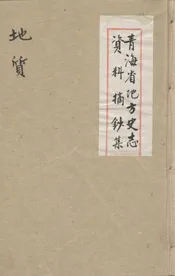 青海省地方史志
資料摘鈔集
地质